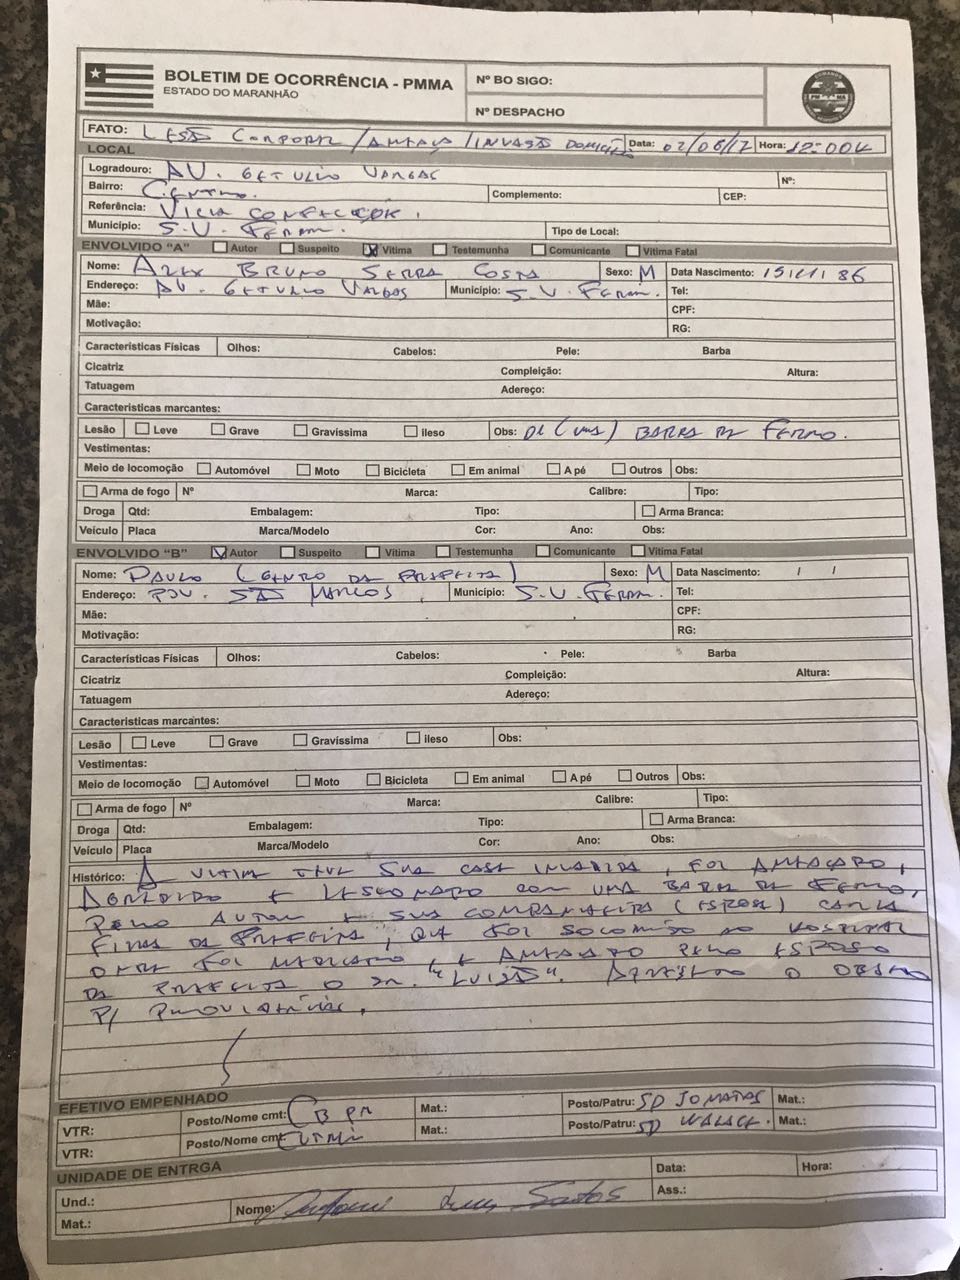 BOLETIM DE OCORRÊNCIA - PMMA
ESTADO DO MARANHÃO
Nº BO SIGO:
Nº DESPACHO
FATO: LESÃO CORPORAL /AMEAÇA/INVASÃO DOMICÍLIO Data: 02/06/17 Hora: 12:00H
LOCAL
Logradouro: AV. GETULIO VARGAS Nº:
Bairro: CENTRO. Complemento: CEP:
Referência: VILA
Município: S.V. FERRER. Tipo de Local:
ENVOLVIDO "A" Autor Suspeito Vítima Testemunha Comunicante Vítima Fatal
Nome: ALEX BRUNO SERRA COSTA Sexo: M Data Nascimento: 15/11/86
Endereço: AV. GETULIO VARGAS Município: S.V. FERRER. Tel:
Mãe: CPF:
Motivação: RG:
Características Físicas Olhos: Cabelos: Pele: Barba
Cicatriz Compleição: Altura:
Tatuagem Adereço:
Caracteristicas marcantes:
Lesão Leve Grave Gravíssima ileso Obs: 01 (UMA) BARRA DE FERRO.
Vestimentas:
Meio de locomoção Automóvel Moto Bicicleta Em animal A pé Outros Obs:
Arma de fogo Nº Marca: Calibre: Tipo:
Droga Qtd: Embalagem: Tipo: Arma Branca:
Veículo Placa Marca/Modelo Cor: Ano: Obs:
ENVOLVIDO "B" Autor Suspeito Vítima Testemunha Comunicante Vítima Fatal
Nome: PAULO (GENRO DA PREFEITA) Sexo: M Data Nascimento: / /
Endereço: POV. SÃO MARCOS. Município: S.V. FERRER. Tel:
Mãe: CPF:
Motivação: RG:
Características Físicas Olhos: Cabelos: Pele: Barba
Cicatriz Compleição: Altura:
Tatuagem Adereço:
Caracteristicas marcantes:
Lesão Leve Grave Gravíssima ileso Obs:
Vestimentas:
Meio de locomoção Automóvel Moto Bicicleta Em animal A pé Outros Obs:
Arma de fogo Nº Marca: Calibre: Tipo:
Droga Qtd: Embalagem: Tipo: Arma Branca:
Veículo Placa Marca/Modelo Cor: Ano: Obs:
Histórico: A VITIMA TEVE SUA CASA INVADIDA, FOI AMEAÇADO,
AGREDIDO E LESIONADO COM UMA BARRA DE FERRO,
PELO AUTOR E SUA COMPANHEIRA (ESPOSA)
FILHA DA PREFEITA, QUE FOI SOCORRIDO AO HOSPITAL
ONDE FOI MEDICADO, E AMEAÇADO PELO ESPOSO
DA PREFEITA O SR. "LUISÃO". O
P/ PROVIDÊNCIAS.
EFETIVO EMPENHADO
VTR: Posto/Nome cmt: CB PM Mat.: Posto/Patru: SD JONATAS Mat.:
VTR: Posto/Nome cmt: Mat.: Posto/Patru: SD WALACE. Mat.:
UNIDADE DE ENTRGA
Und.: Data: Hora:
Mat.: Nome: Santos Ass.: